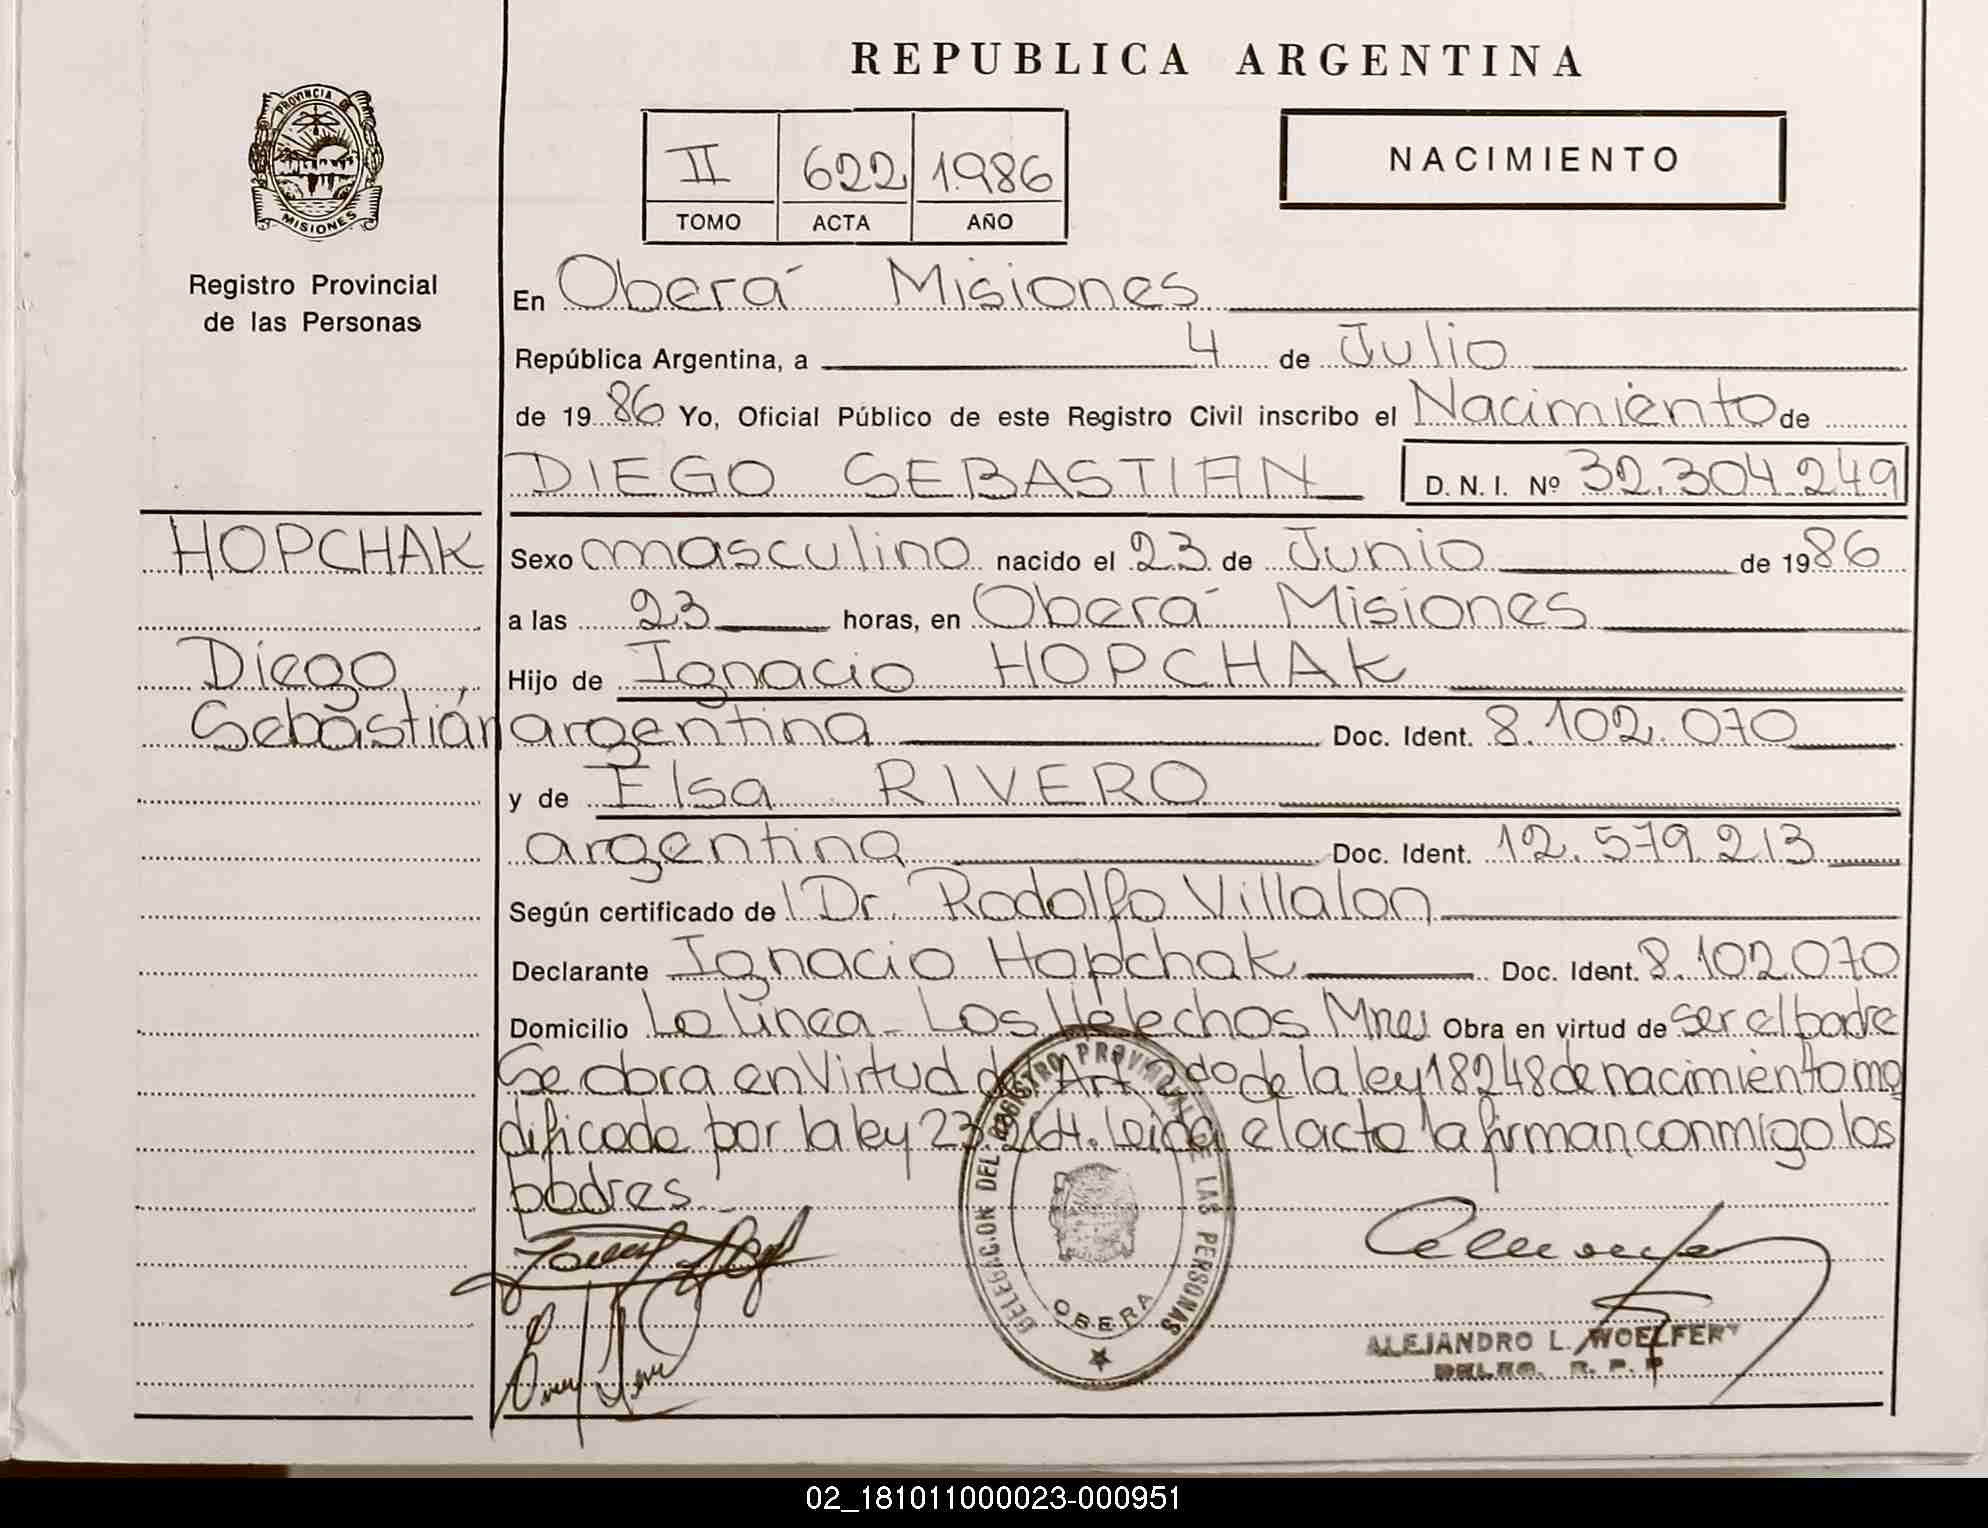 REPUBLICA ARGENTINA
PROVINCIA DE MISIONES
Registro Provincial
de las Personas
II 622 1.986
TOMO ACTA AÑO
NACIMIENTO
En Oberá Misiones
República Argentina, a 4 de Julio
de 19 86 Yo, Oficial Público de este Registro Civil inscribo el Nacimiento de
DIEGO SEBASTIAN D. N. I. Nº 32.304.249
HOPCHAK
Diego
Sebastián
Sexo masculino nacido el 23 de Junio de 1986
a las 23 horas, en Oberá Misiones
Hijo de Ignacio HOPCHAK
argentina Doc. Ident. 8.102.070
y de Elsa RIVERO
argentina Doc. Ident. 12.579.213
Según certificado del Dr. Rodolfo Villalon
Declarante Ignacio Hopchak Doc. Ident. 8.102.070
Domicilio La Linea - Los Helechos Mnes Obra en virtud de ser el padre
Se obra en Virtud del Art. 2do de la ley 18248 de nacimiento mo
dificado por la ley 23.264. Leida el acta la firman conmigo los
padres.
DELEGACION DEL REGISTRO PROVINCIAL DE LAS PERSONAS
OBERA
ALEJANDRO L. WOELFERT
DELEG. R. P. P.
02_181011000023-000951